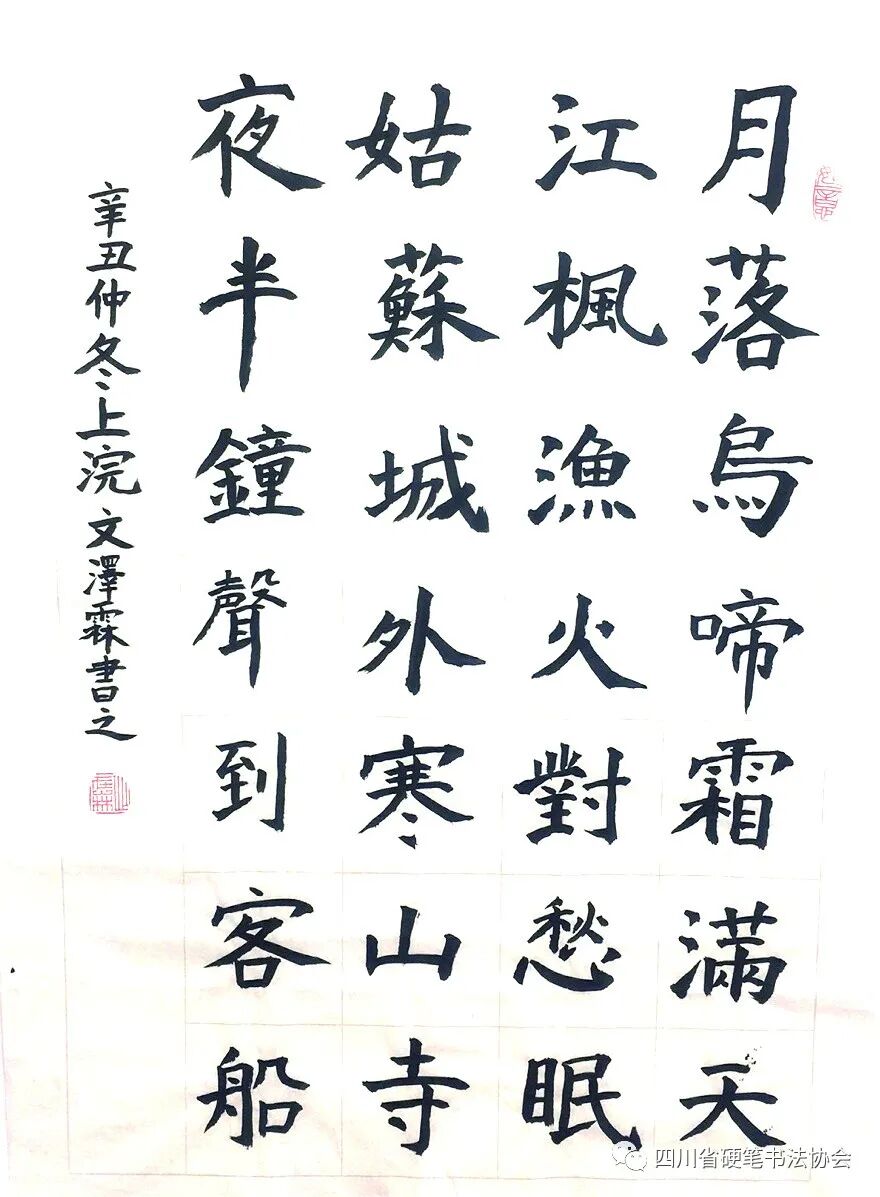 月落烏啼霜滿天
江楓漁火對愁眠
姑蘇城外寒山寺
夜半鐘聲到客船
辛丑仲冬上浣文澤霖書之
四川省硬笔书法协会